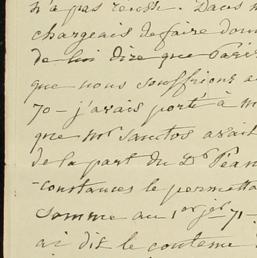 n'a pas réussi. Dans
chargeais de faire don
de lui dire que Paris
que nous souffrions
70 – j'avais porté à m
que Mr Santos avait
de la part du Dr Pean
-constances le permetta
somme au 1er jer 71 –
ai dit le contenu